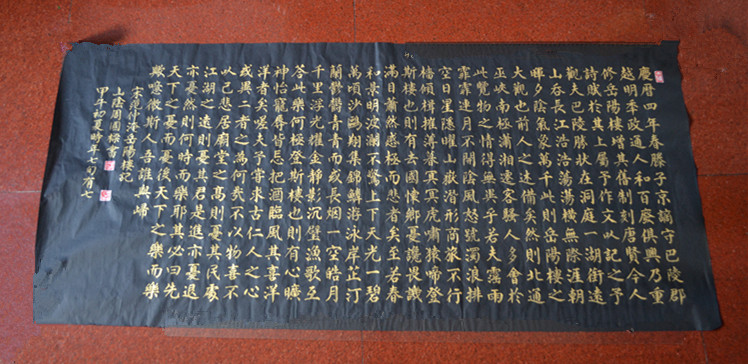 慶曆四年春滕子京謫守巴陵郡
越明年政通人和百廢俱興乃重
修岳陽樓增其舊制刻唐賢今人
詩賦於其上屬予作文以記之予
觀夫巴陵勝狀在洞庭一湖銜遠
山吞長江浩浩蕩蕩橫無際涯朝
暉夕陰氣象萬千此則岳陽樓之
大觀也前人之述備矣然則北通
巫峽南極瀟湘遷客騷人多會於
此覽物之情得無異乎若夫霪雨
霏霏連月不開陰風怒號濁浪排
空日星隱曜山嶽潛形商旅不行
檣傾楫摧薄暮冥冥虎嘯猿啼登
斯樓也則有去國懷鄉憂讒畏譏
滿目蕭然感極而悲者矣至若春
和景明波瀾不驚上下天光一碧
萬頃沙鷗翔集錦鱗游泳岸芷汀
蘭欝欝青青而或長烟一空皓月
千里浮光耀金靜影沉璧漁歌互
答此樂何極登斯樓也則有心曠
神怡寵辱皆忘把酒臨風其喜洋
洋者矣嗟夫予嘗求古仁人之心
或異二者之為何哉不以物喜不
以己悲居廟堂之高則憂其民處
江湖之遠則憂其君是進亦憂退
亦憂然則何時而樂耶其必曰先
天下之憂而憂後天下之樂而樂
歟噫微斯人吾誰與歸
宋范仲淹岳陽樓記
山陰周國雄書
甲午初夏時年七旬有七